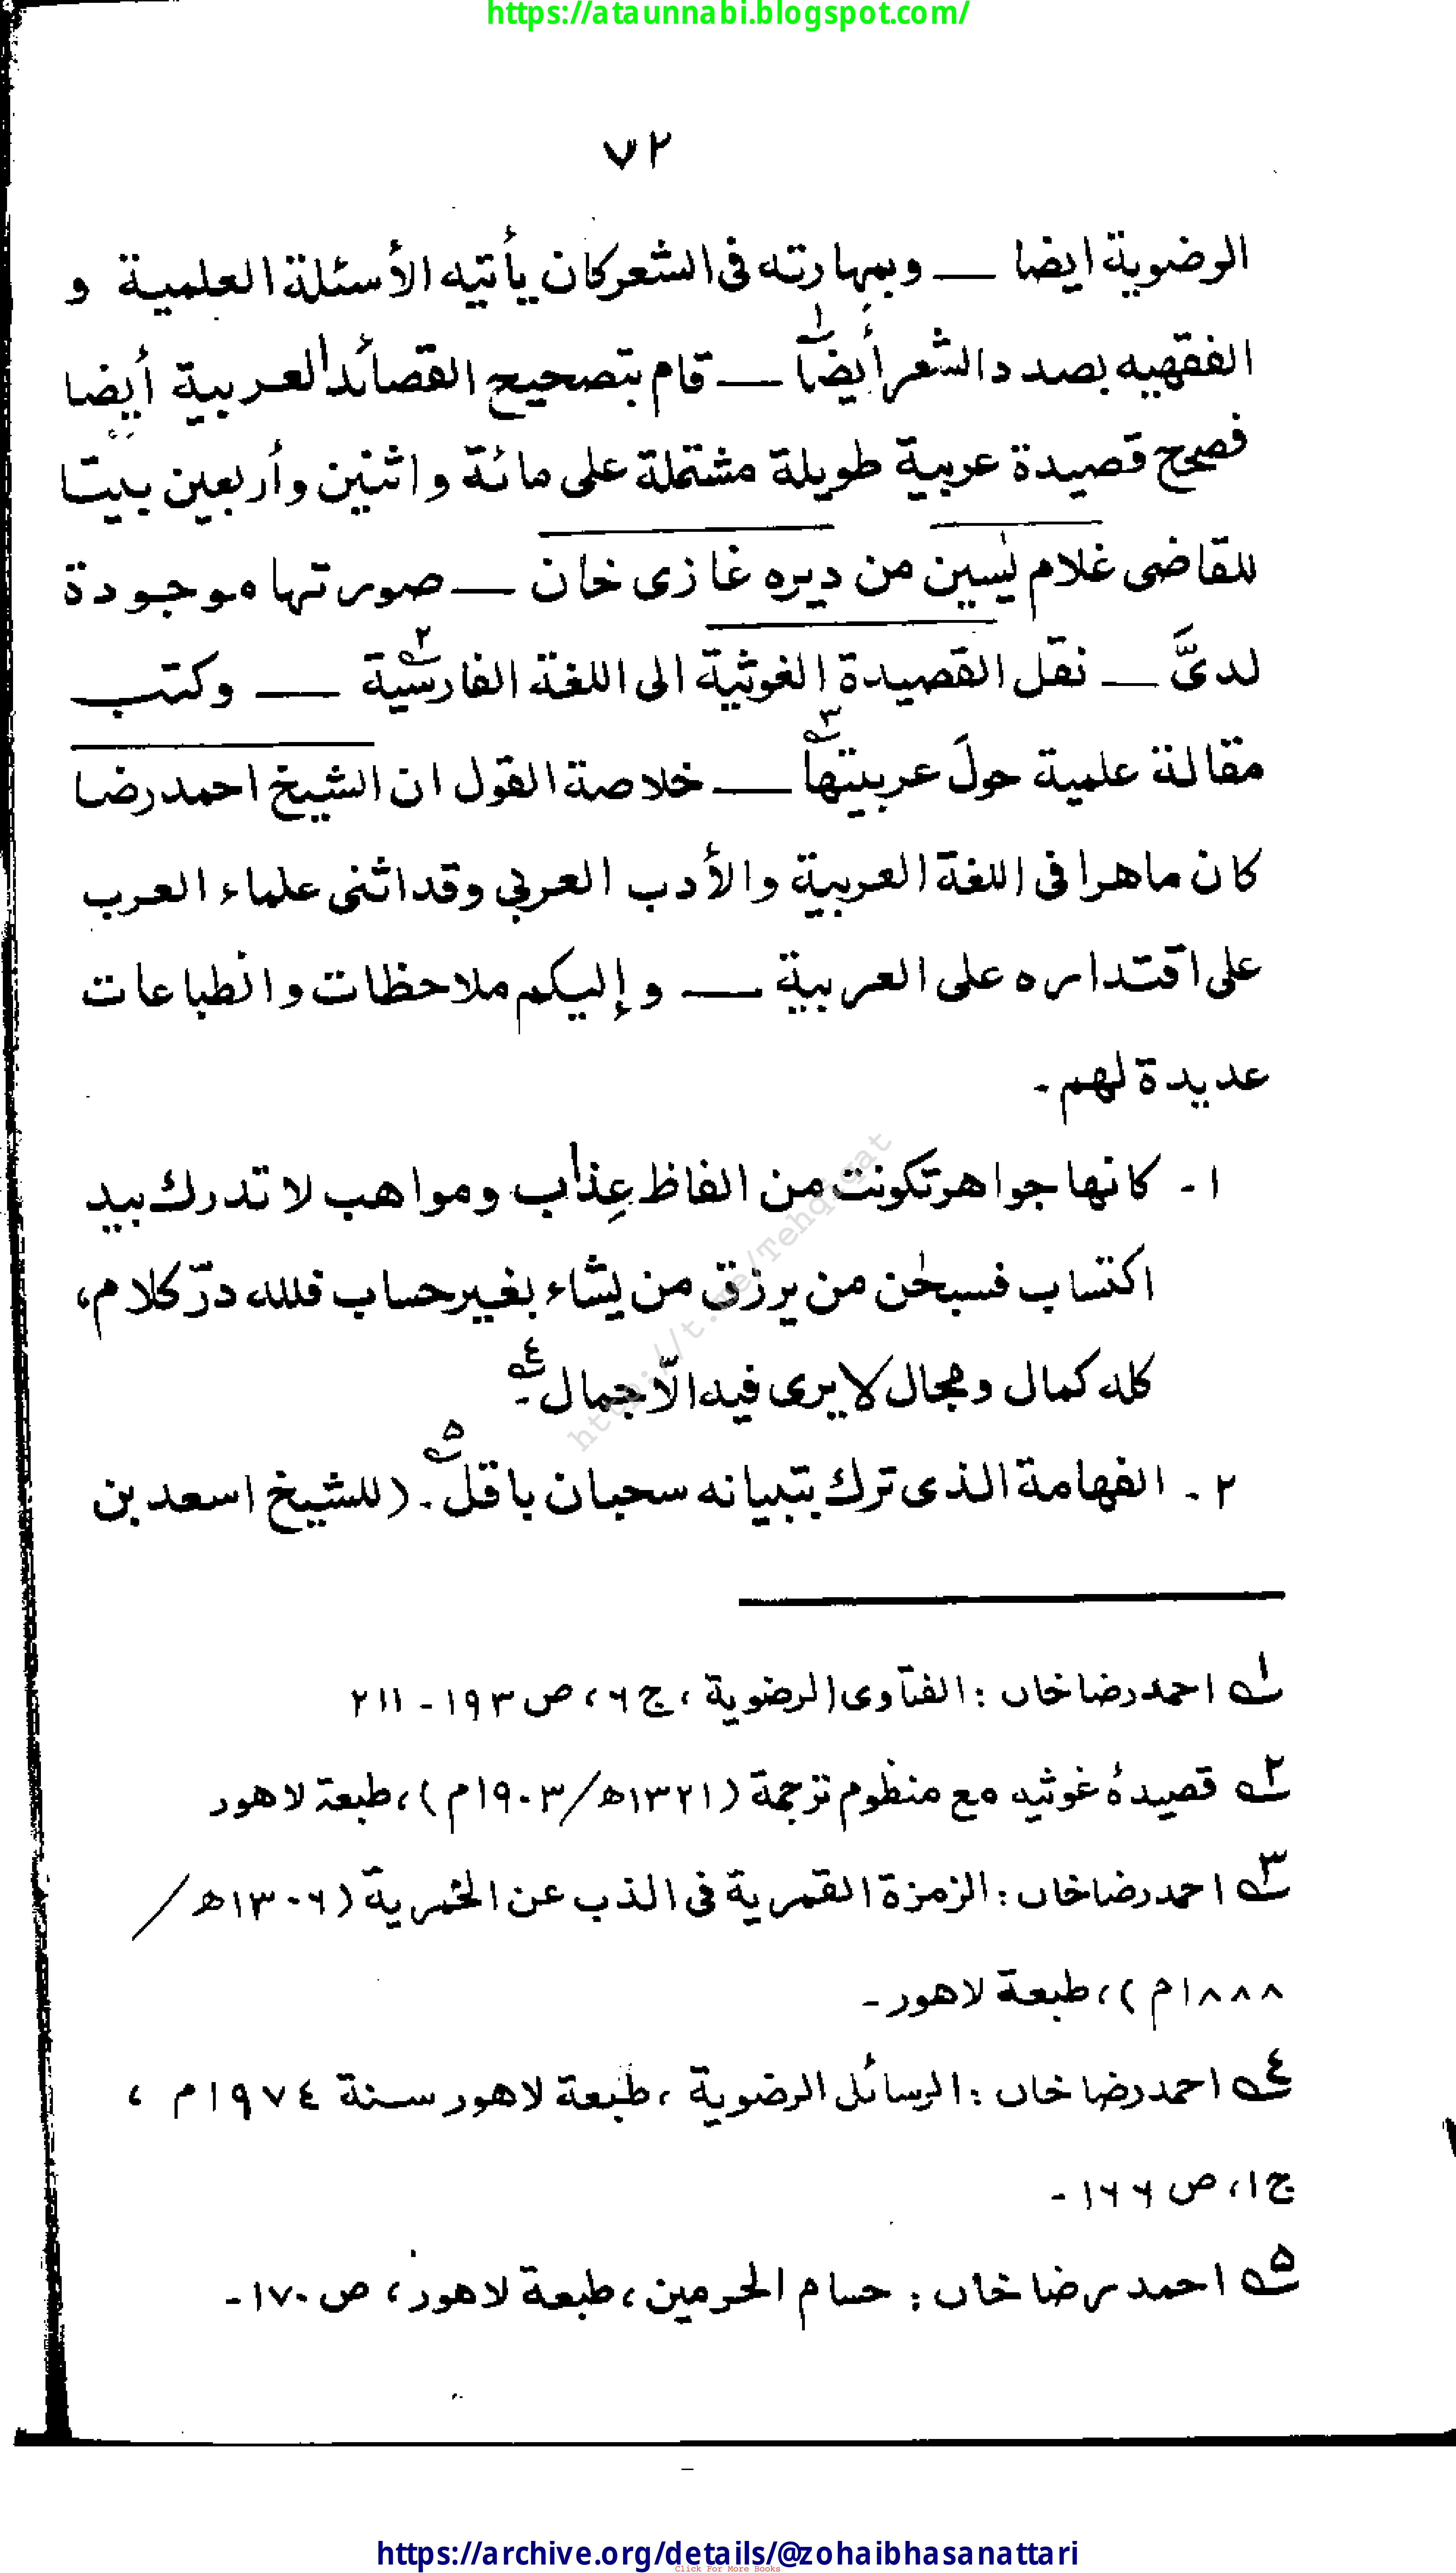 https://ataunnabi.blogspot.com/
٧٢
الرضوية ايضا ــــ وبمهارته فى الشعر كان يأتيه الأسئلة العلمية و
الفقهيه بصدد الشعر أيضًا١ ــــ قام بتصحيح القصائد العربية أيضا
فصحح قصيدة عربية طويلة مشتملة على مائة واثنين وأربعين بيتًا
للقاضى غلام يٰسين من ديره غازى خان ــــ صورتها موجودة
لدىَّ ــــ نقل القصيدة الغوثية الى اللغة الفارسية٢ ــــ وكتب
مقالة علمية حولَ عربيتها٣ ــــ خلاصة القول ان الشيخ احمد رضا
كان ماهرا فى اللغة العربية والأدب العربي وقد اثنى علماء العرب
على اقتداره على العربية ــــ وإليكم ملاحظات وانطباعات
عديدة لهم ۔
١ - كانها جواهر تكونت من الفاظ عِذاب ومواهب لا تدرك بيد
اكتساب فسبحٰن من يرزق من يشاء بغير حساب فلله درّ كلام،
كله كمال ومجال لا يرى فيه الّا جمال٤ ۔
٢ - الفهامة الذى ترك بتبيانه سحبان باقل٥ ۔ (للشيخ اسعد بن
١ احمد رضا خاں : الفتاوى الرضوية ، ج ٦ ، ص ١٩٣ - ٢١١
٢ قصيدۂ غوثيه مع منظوم ترجمة (١٣٢١ھ/١٩٠٣م)، طبعة لاهور
٣ احمد رضا خاں : الزمزمة القمرية فى الذب عن الخمرية (١٣٠٦ھ/
١٨٨٨م)، طبعة لاهور ۔
٤ احمد رضا خاں : الرسائل الرضوية ، طبعة لاهور سنة ١٩٧٤م ،
ج ١، ص ١٦٦ ۔
٥ احمد رضا خاں : حسام الحرمين ، طبعة لاهور ، ص ١٧٠ ۔
http://t.me/Tehqiqat
https://archive.org/details/@zohaibhasanattari
Click For More Books